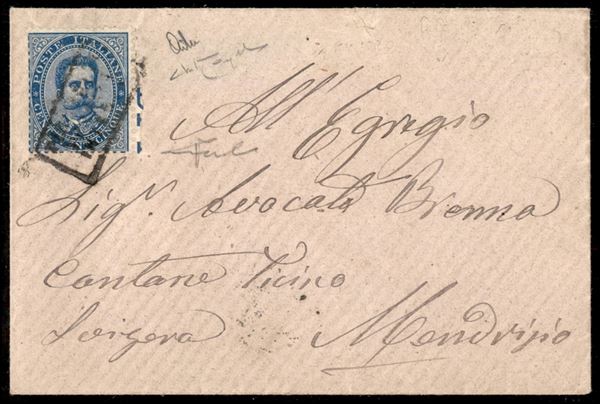 POSTE ITALIANE
CENT. VENTICINQUE
All' Egregio
Sig.r Avocato Brenna
Cantone Ticino
Svizzera Mendrisio